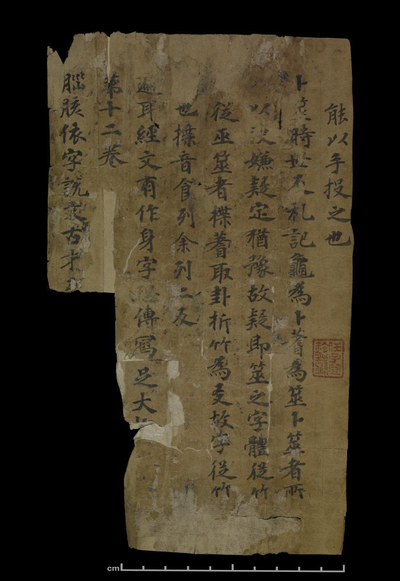 能以手投之也
卜筮時世反礼記龜為卜蓍為筮卜筮者所
以決嫌疑定猶豫故疑即筮之字體從竹
從巫筮者揲蓍取卦折竹為爻故字從竹
也揲音食列余列二反
耳經文有作身字傳寫足大
第十二卷
脳胲依字説文古才
cm